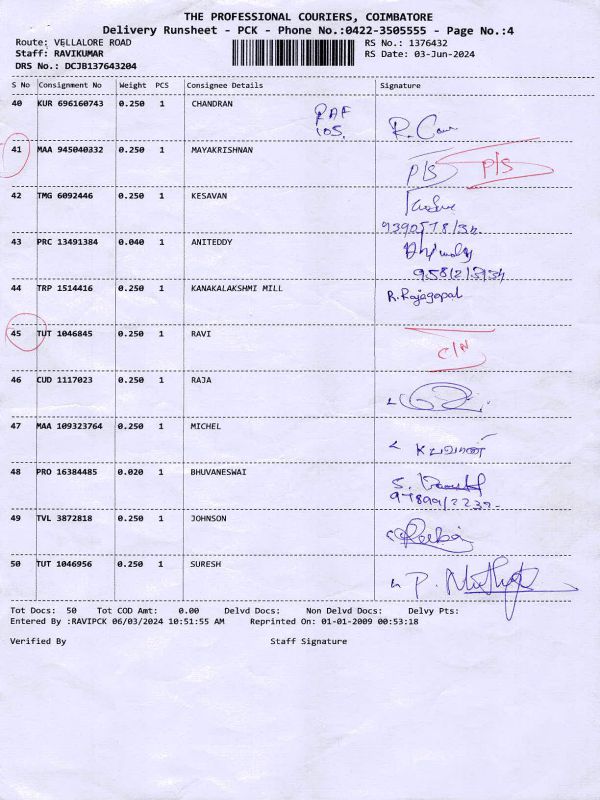 THE PROFESSIONAL COURIERS, COIMBATORE
Delivery Runsheet - PCK - Phone No.:0422-3505555 - Page No.:4
Route: VELLALORE ROAD RS No.: 1376432
Staff: RAVIKUMAR RS Date: 03-Jun-2024
DRS No.: DCJB137643204
S No Consignment No Weight PCS Consignee Details Signature
40 KUR 696160743 0.250 1 CHANDRAN
41 MAA 945040332 0.250 1 MAYAKRISHNAN P/S P/S
42 TMG 6092446 0.250 1 KESAVAN
43 PRC 13491384 0.040 1 ANITEDDY
44 TRP 1514416 0.250 1 KANAKALAKSHMI MILL R.Rajagopal
45 TUT 1046845 0.250 1 RAVI C/N
46 CUD 1117023 0.250 1 RAJA
47 MAA 109323764 0.250 1 MICHEL
48 PRO 16384485 0.020 1 BHUVANESWAI
49 TVL 3872818 0.250 1 JOHNSON
50 TUT 1046956 0.250 1 SURESH
Tot Docs: 50 Tot COD Amt: 0.00 Delvd Docs: Non Delvd Docs: Delvy Pts:
Entered By :RAVIPCK 06/03/2024 10:51:55 AM Reprinted On: 01-01-2009 00:53:18
Verified By Staff Signature